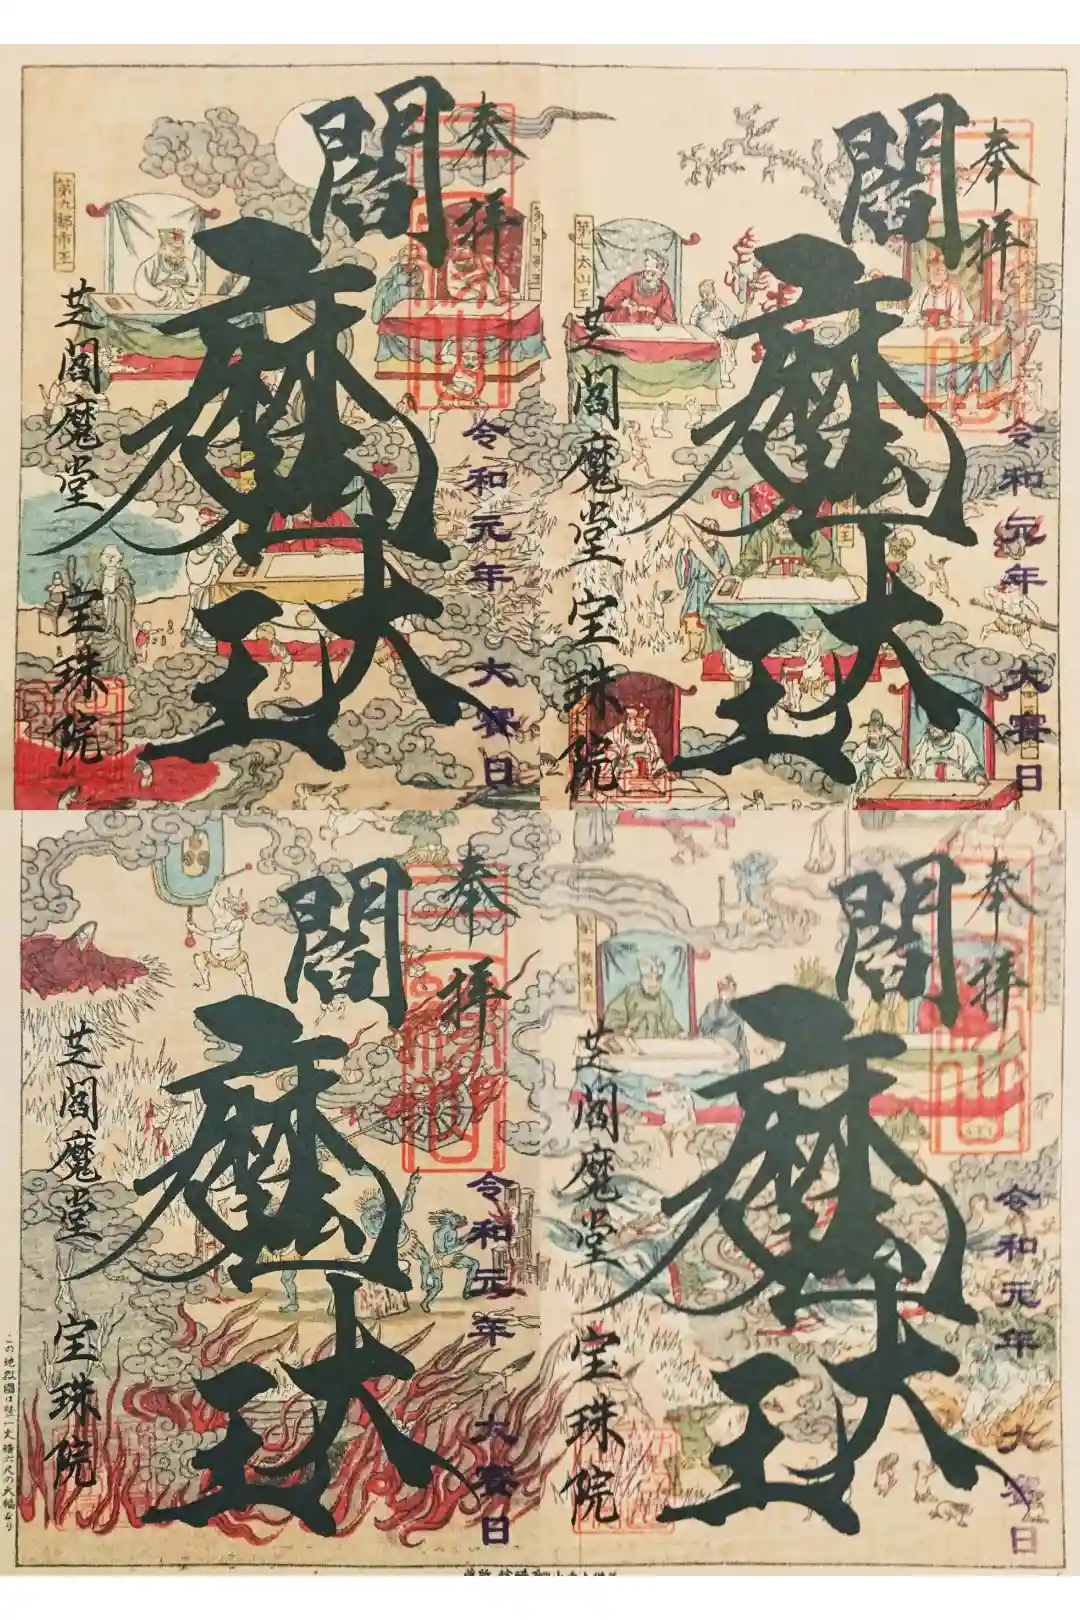 奉拝
閻魔大王
令和元年 大賽日
芝閻魔堂 宝珠院
第九都市王
奉拝
閻魔大王
令和元年 大賽日
芝閻魔堂 宝珠院
第七太山王
奉拝
閻魔大王
令和元年 大賽日
芝閻魔堂 宝珠院
奉拝
閻魔大王
令和元年 大賽日
芝閻魔堂 宝珠院